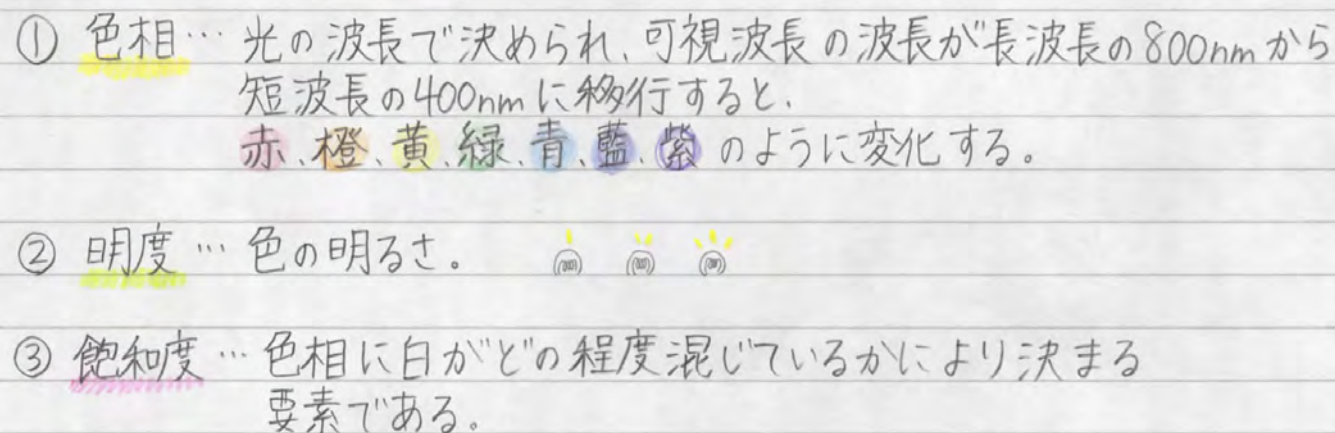 ① 色相… 光の波長で決められ、可視波長の波長が長波長の800nmから
短波長の400nmに移行すると、
赤、橙、黄、緑、青、藍、紫のように変化する。
② 明度… 色の明るさ。
③ 飽和度… 色相に白がどの程度混じているかにより決まる
要素である。